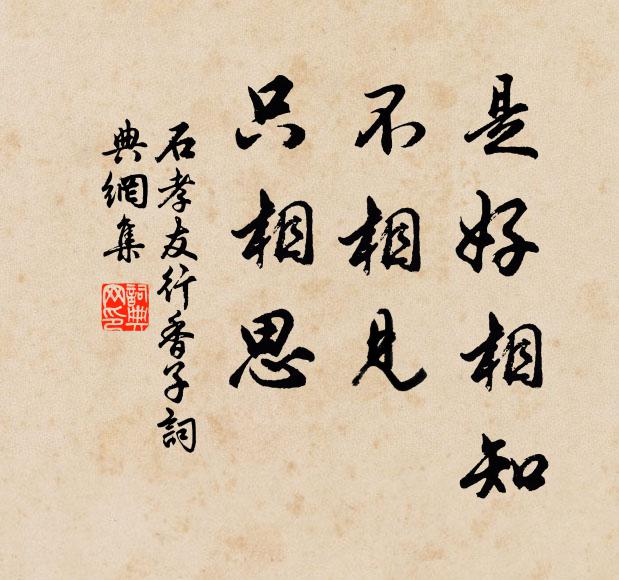 是好相知
不相見
只相思
石孝友行香子詞
典網集
詞典網印